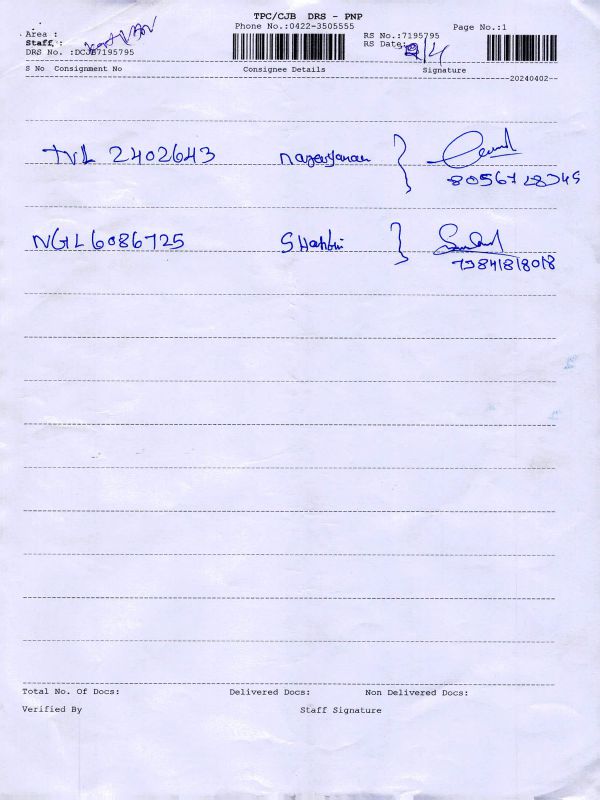 TPC/CJB DRS - PNP
Phone No.:0422-3505555
Page No.:1
Area :
RS No.:7195795
Staff :
RS Date: 2/4
DRS No. :DCJB7195795
S No Consignment No Consignee Details Signature
20240402
TVL 2402643 narayanan
NGL6086725
Total No. Of Docs: Delivered Docs: Non Delivered Docs:
Verified By Staff Signature